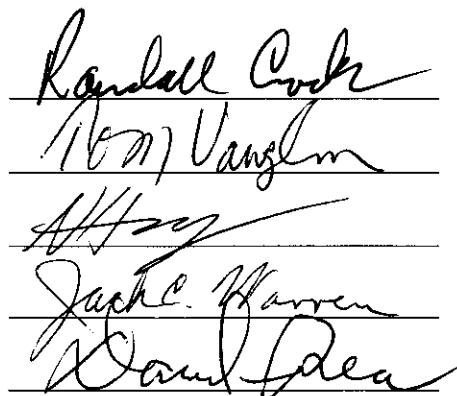 Randall Cook
Tom Vaughn
Jack C. Warren
David Rea